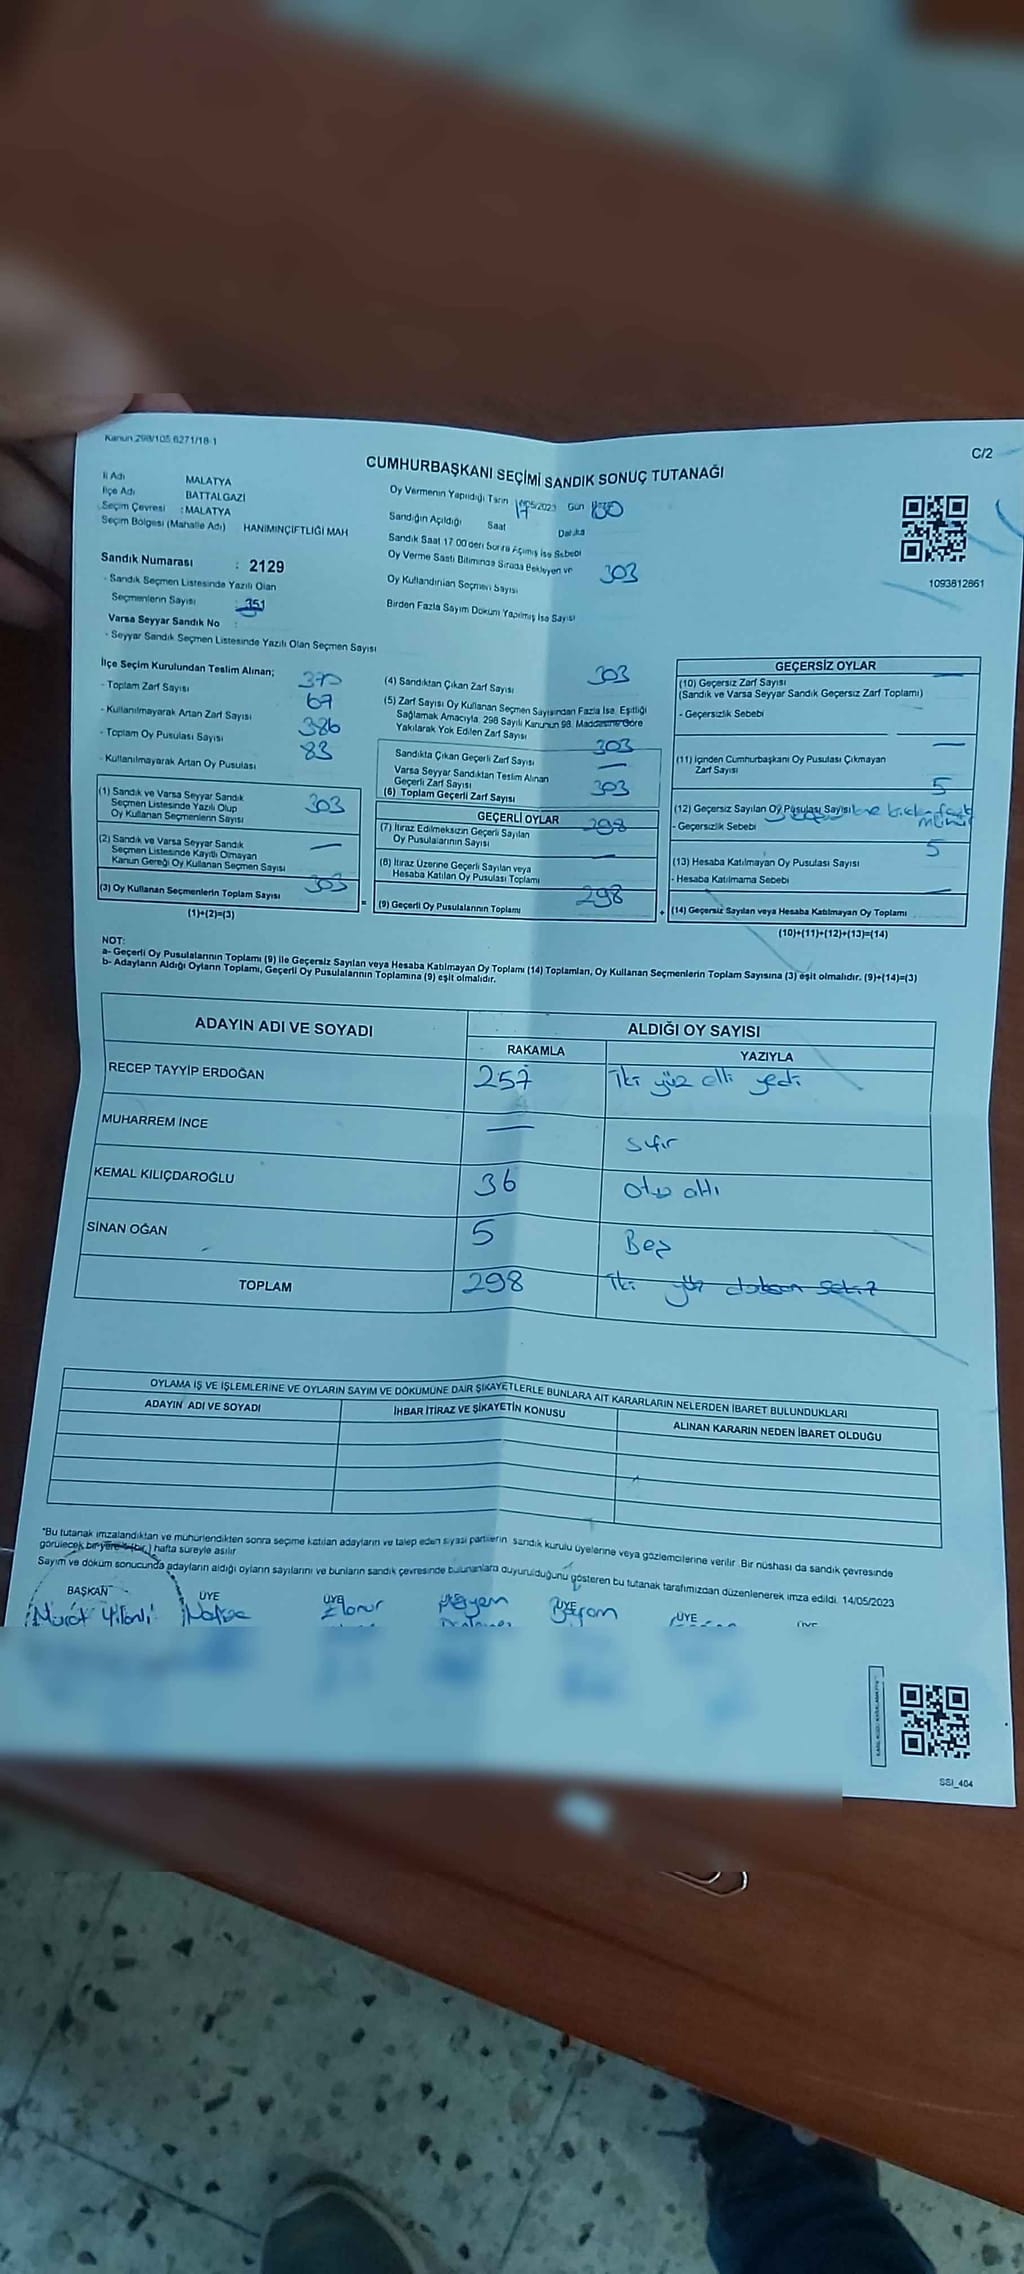 Kanun 298/105 6271/18-1
C/2
CUMHURBAŞKANI SEÇİMİ SANDIK SONUÇ TUTANAĞI
İl Adı MALATYA
İlçe Adı BATTALGAZİ
Seçim Çevresi : MALATYA
Seçim Bölgesi (Mahalle Adı) HANIMINÇİFTLİĞİ MAH
Sandık Numarası : 2129
- Sandık Seçmen Listesinde Yazılı Olan
Seçmenlerin Sayısı : 351
Varsa Seyyar Sandık No :
- Seyyar Sandık Seçmen Listesinde Yazılı Olan Seçmen Sayısı
Oy Vermenin Yapıldığı Tarih /05/2023 Gün
Sandığın Açıldığı Saat Dakika
Sandık Saat 17.00'den Sonra Açılmış İse Sebebi
Oy Verme Saati Bitiminde Sırada Bekleyen ve
Oy Kullandırılan Seçmen Sayısı 303
Birden Fazla Sayım Döküm Yapılmış İse Sayısı
1093812861
İlçe Seçim Kurulundan Teslim Alınan;
- Toplam Zarf Sayısı 370
- Kullanılmayarak Artan Zarf Sayısı 67
- Toplam Oy Pusulası Sayısı 386
- Kullanılmayarak Artan Oy Pusulası 83
(1) Sandık ve Varsa Seyyar Sandık
Seçmen Listesinde Yazılı Olup
Oy Kullanan Seçmenlerin Sayısı 303
(2) Sandık ve Varsa Seyyar Sandık
Seçmen Listesinde Kayıtlı Olmayan
Kanun Gereği Oy Kullanan Seçmen Sayısı —
(3) Oy Kullanan Seçmenlerin Toplam Sayısı 303
(1)+(2)=(3)
=
(4) Sandıktan Çıkan Zarf Sayısı 303
(5) Zarf Sayısı Oy Kullanan Seçmen Sayısından Fazla İse, Eşitliği
Sağlamak Amacıyla, 298 Sayılı Kanunun 98. Maddesine Göre
Yakılarak Yok Edilen Zarf Sayısı
Sandıkta Çıkan Geçerli Zarf Sayısı 303
Varsa Seyyar Sandıktan Teslim Alınan
Geçerli Zarf Sayısı —
(6) Toplam Geçerli Zarf Sayısı 303
GEÇERLİ OYLAR
(7) İtiraz Edilmeksizin Geçerli Sayılan
Oy Pusulalarının Sayısı 298
(8) İtiraz Üzerine Geçerli Sayılan veya
Hesaba Katılan Oy Pusulası Toplamı —
(9) Geçerli Oy Pusulalarının Toplamı 298
+
GEÇERSİZ OYLAR
(10) Geçersiz Zarf Sayısı —
(Sandık ve Varsa Seyyar Sandık Geçersiz Zarf Toplamı)
- Geçersizlik Sebebi
(11) İçinden Cumhurbaşkanı Oy Pusulası Çıkmayan
Zarf Sayısı —
5
(12) Geçersiz Sayılan Oy Pusulası Sayısı
- Geçersizlik Sebebi
5
(13) Hesaba Katılmayan Oy Pusulası Sayısı
- Hesaba Katılmama Sebebi
(14) Geçersiz Sayılan veya Hesaba Katılmayan Oy Toplamı —
(10)+(11)+(12)+(13)=(14)
NOT:
a- Geçerli Oy Pusulalarının Toplamı (9) ile Geçersiz Sayılan veya Hesaba Katılmayan Oy Toplamı (14) Toplamları, Oy Kullanan Seçmenlerin Toplam Sayısına (3) eşit olmalıdır. (9)+(14)=(3)
b- Adayların Aldığı Oyların Toplamı, Geçerli Oy Pusulalarının Toplamına (9) eşit olmalıdır.
ADAYIN ADI VE SOYADI ALDIĞI OY SAYISI
RAKAMLA YAZIYLA
RECEP TAYYİP ERDOĞAN 257 iki yüz elli yedi
MUHARREM İNCE — sıfır
KEMAL KILIÇDAROĞLU 36 otuz altı
SİNAN OĞAN 5 Beş
TOPLAM 298 iki yüz doksan sekiz
OYLAMA İŞ VE İŞLEMLERİNE VE OYLARIN SAYIM VE DÖKÜMÜNE DAİR ŞİKAYETLERLE BUNLARA AİT KARARLARIN NELERDEN İBARET BULUNDUKLARI
ADAYIN ADI VE SOYADI İHBAR İTİRAZ VE ŞİKAYETİN KONUSU ALINAN KARARIN NEDEN İBARET OLDUĞU
*Bu tutanak imzalandıktan ve mühürlendikten sonra seçime katılan adayların ve talep eden siyasi partilerin sandık kurulu üyelerine veya gözlemcilerine verilir. Bir nüshası da sandık çevresinde
görülecek bir yere 1 (bir) hafta süreyle asılır.
Sayım ve döküm sonucunda adayların aldığı oyların sayılarını ve bunların sandık çevresinde bulunanlara duyurulduğunu gösteren bu tutanak tarafımızdan düzenlenerek imza edildi. 14/05/2023
BAŞKAN ÜYE ÜYE ÜYE ÜYE ÜYE
Murat Elanur Meryem Bayram
SSI_404